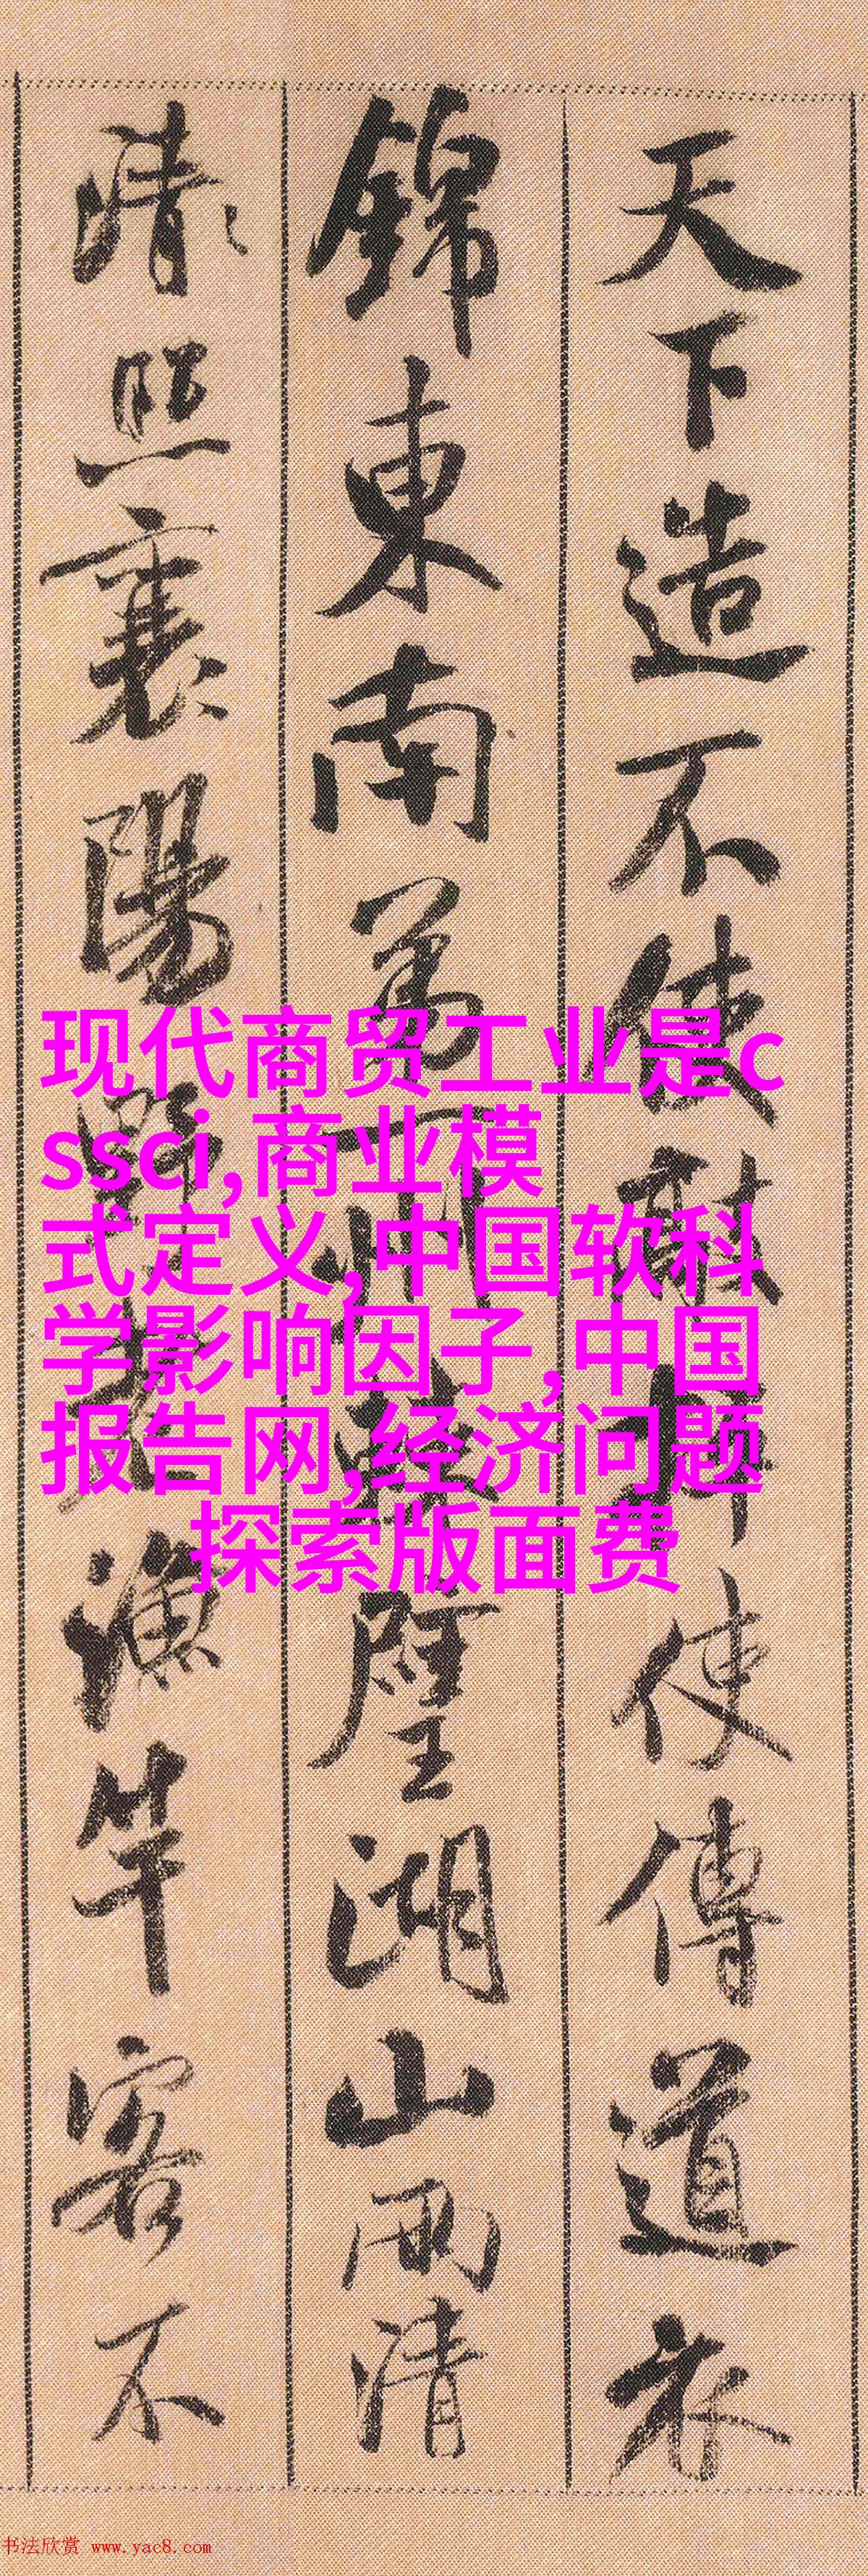 天下造不使
使傳道衣
錦東南萬
壁湖山兩清
清照裏陽
漁竿客不
现代商贸工业是c
ssci,商业模
式定义,中国软科
学影响因子,中国
报告网,经济问题
探索版面费
书法欣赏 www.yac8.com